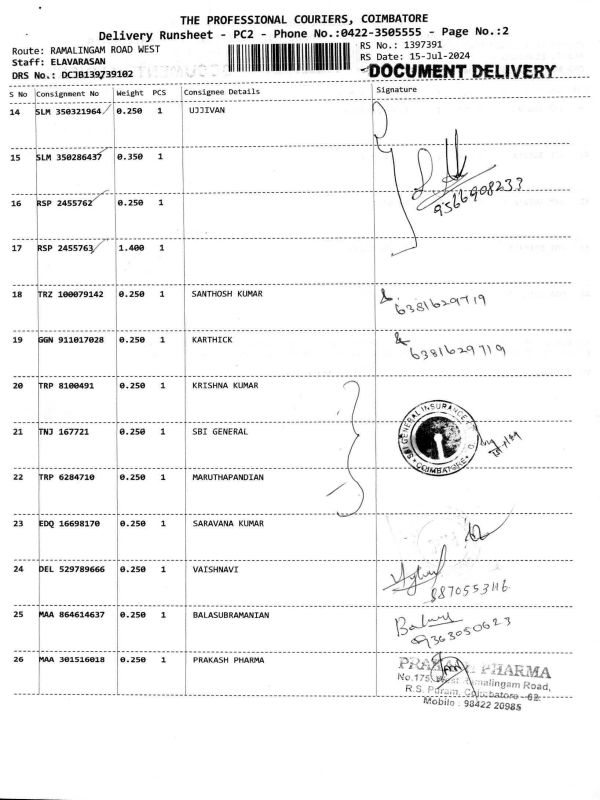 THE PROFESSIONAL COURIERS, COIMBATORE
Delivery Runsheet - PC2 - Phone No.:0422-3505555 - Page No.:2
Route: RAMALINGAM ROAD WEST
Staff: ELAVARASAN
DRS No.: DCJB139739102
RS No.: 1397391
RS Date: 15-Jul-2024
DOCUMENT DELIVERY
S No Consignment No Weight PCS Consignee Details Signature
14 SLM 350321964 0.250 1 UJJIVAN
15 SLM 350286437 0.350 1
9566908233
16 RSP 2455762 0.250 1
17 RSP 2455763 1.400 1
18 TRZ 100079142 0.250 1 SANTHOSH KUMAR 6381629719
19 GGN 911017028 0.250 1 KARTHICK 6381629719
20 TRP 8100491 0.250 1 KRISHNA KUMAR
21 TNJ 167721 0.250 1 SBI GENERAL
SBI GENERAL INSURANCE
COIMBATORE
22 TRP 6284710 0.250 1 MARUTHAPANDIAN
23 EDQ 16698170 0.250 1 SARAVANA KUMAR
24 DEL 529789666 0.250 1 VAISHNAVI
25 MAA 864614637 0.250 1 BALASUBRAMANIAN
9363050623
26 MAA 301516018 0.250 1 PRAKASH PHARMA
PHARMA
No.175, West Ramalingam Road,
R.S. Puram, Coimbatore - 62.
Mobile : 98422 20985